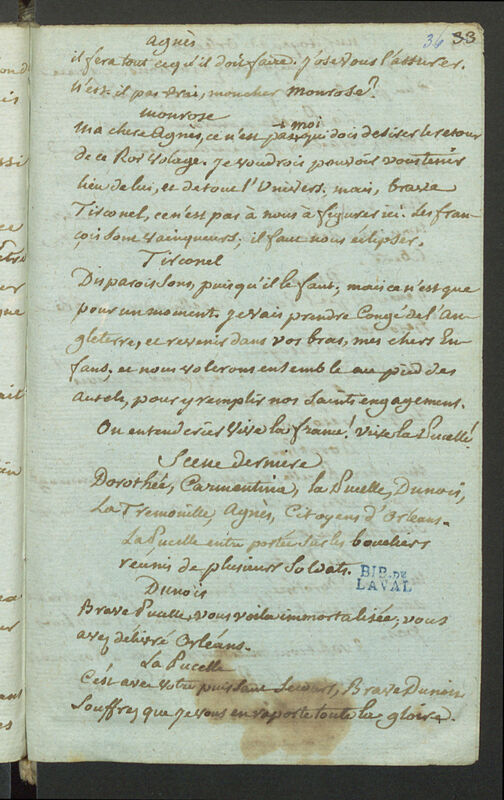 36 33
agnès
il fera tout ce qu'il doit faire. j'ose vous l'assurer.
n'est-il pas vrai, mon cher monrose?
monrose
ma chere Agnès, ce n'est pas moi qui dois desirer le retour
de ce Roi volage. je voudrois pouvoir vous tenir
lieu de lui, et de tout l'univers. mais, brave
Tirconel, ce n'est pas à nous à figurer ici. les fran
çois sont vainqueurs. il faut nous éclipser.
Tirconel
Disparoissons, puisqu'il le faut, mais ce n'est que
pour un moment. je vais prendre Congé de l'an
gleterre, et revenir dans vos bras, mes chers En
fans, et nous volerons ensemble au pied des
autels, pour y remplir nos saints engagement.
On entend crier vive la france! vive la Pucelle!
Scene derniere
Dorothée, Carmentine, la Pucelle, Dunois,
La Tremouille, Agnès, Citoyens d'Orléans.
La Pucelle entre portée sur les boucliers
reunis de plusieurs Soldats.
BIB. DE
LAVAL
Dunois
Brave Pucelle, vous voila immortalisée, vous
avez delivré Orléans.
La Pucelle
C'est avec votre puissant secours, Brave Dunois
Souffrez que je vous en reporte toute la gloire.